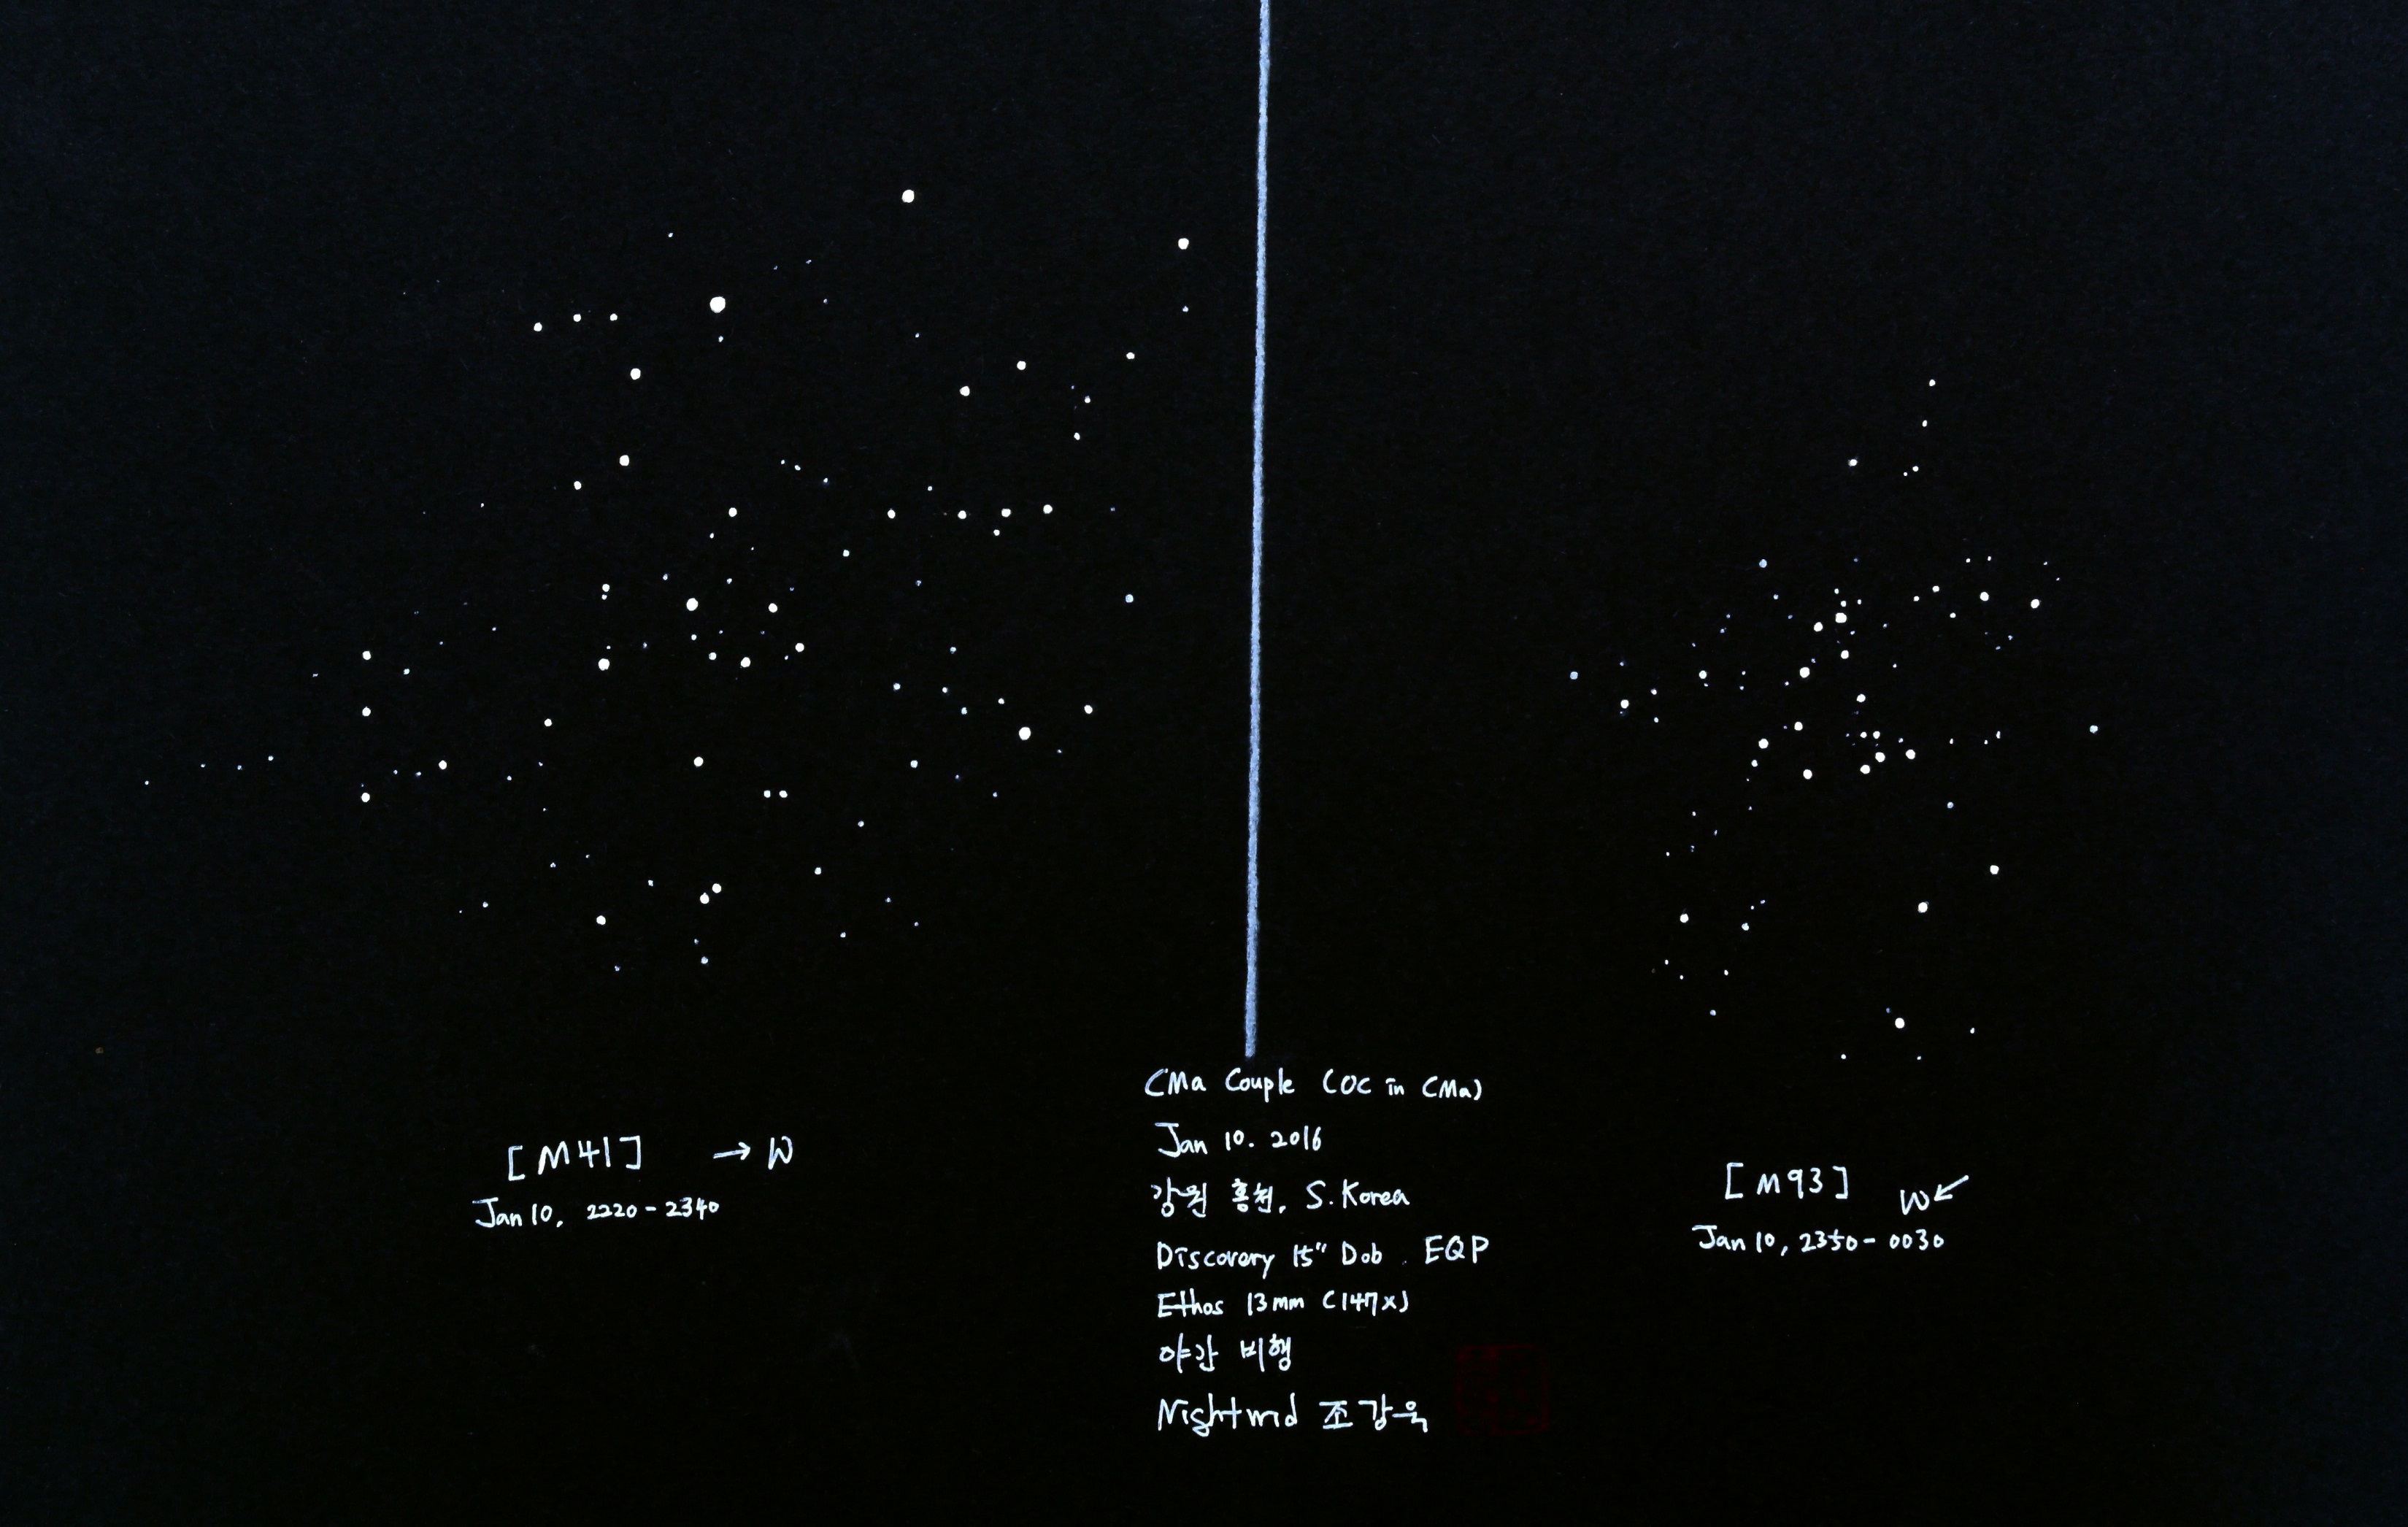 [M41] → W
Jan 10, 2220-2340
CMa Couple (OC in CMa)
Jan 10. 2016
강원 홍천, S.Korea
Discovery 15" Dob. EQP
Ethos 13mm (147x)
야간 비행
Nightwid 조강욱
[M93] W↙
Jan 10, 2350-0030